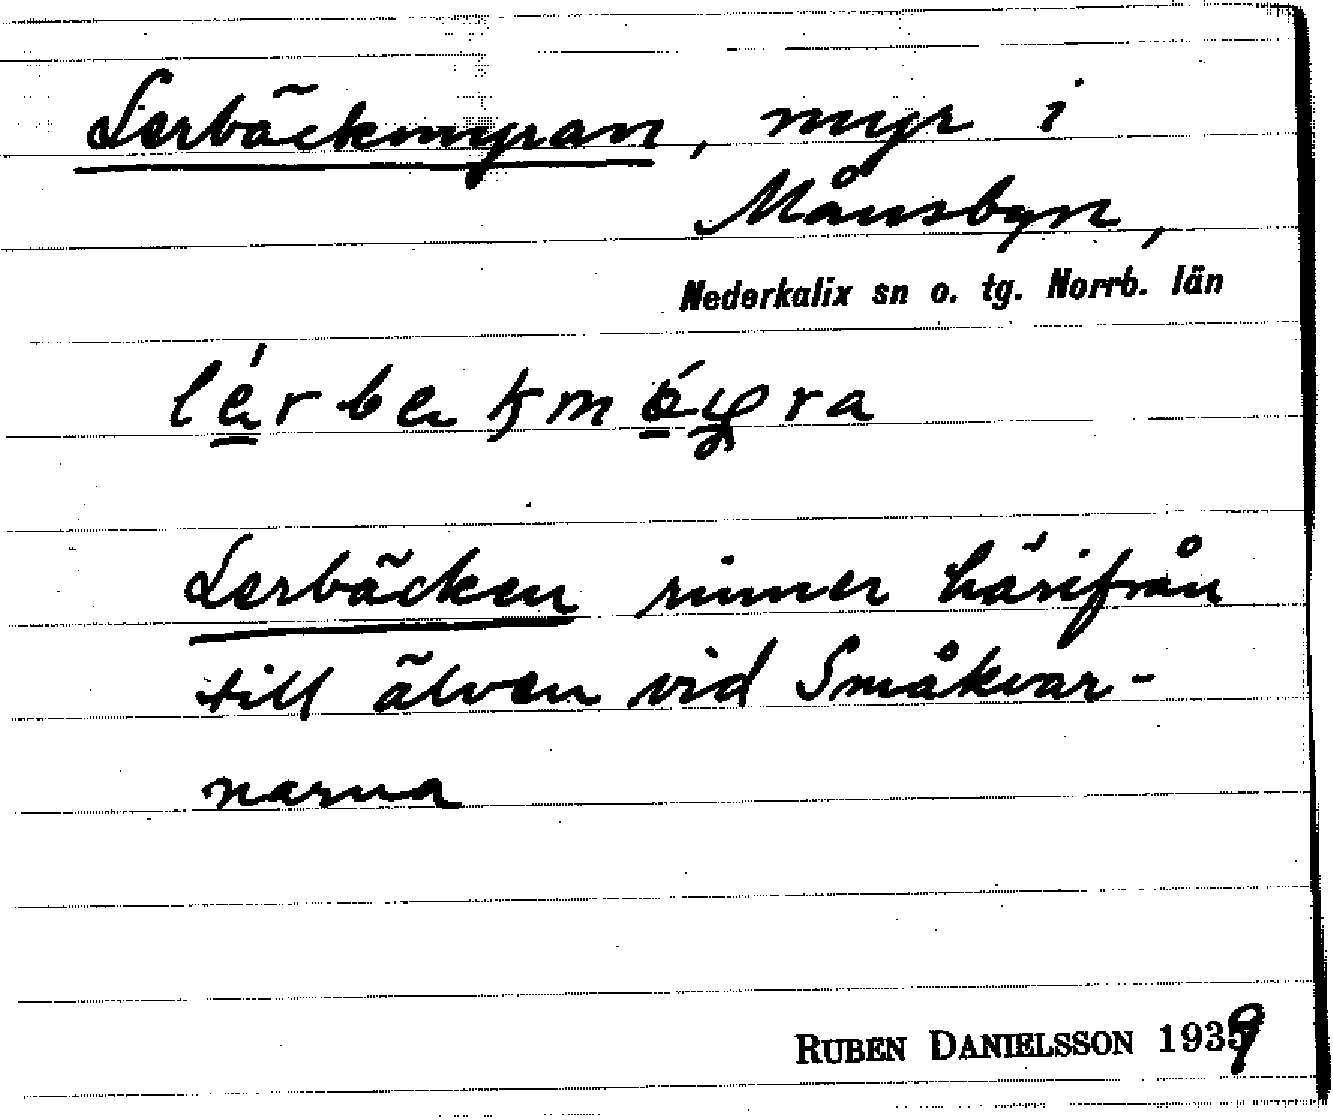 Lerbäckmyran, myr i
Månsbyn,
Nederkalix sn o. tg. Norrb. län
Lerbäcken rinner härifrån
till älven vid Småkvar-
narna
RUBEN DANIELSSON 1939